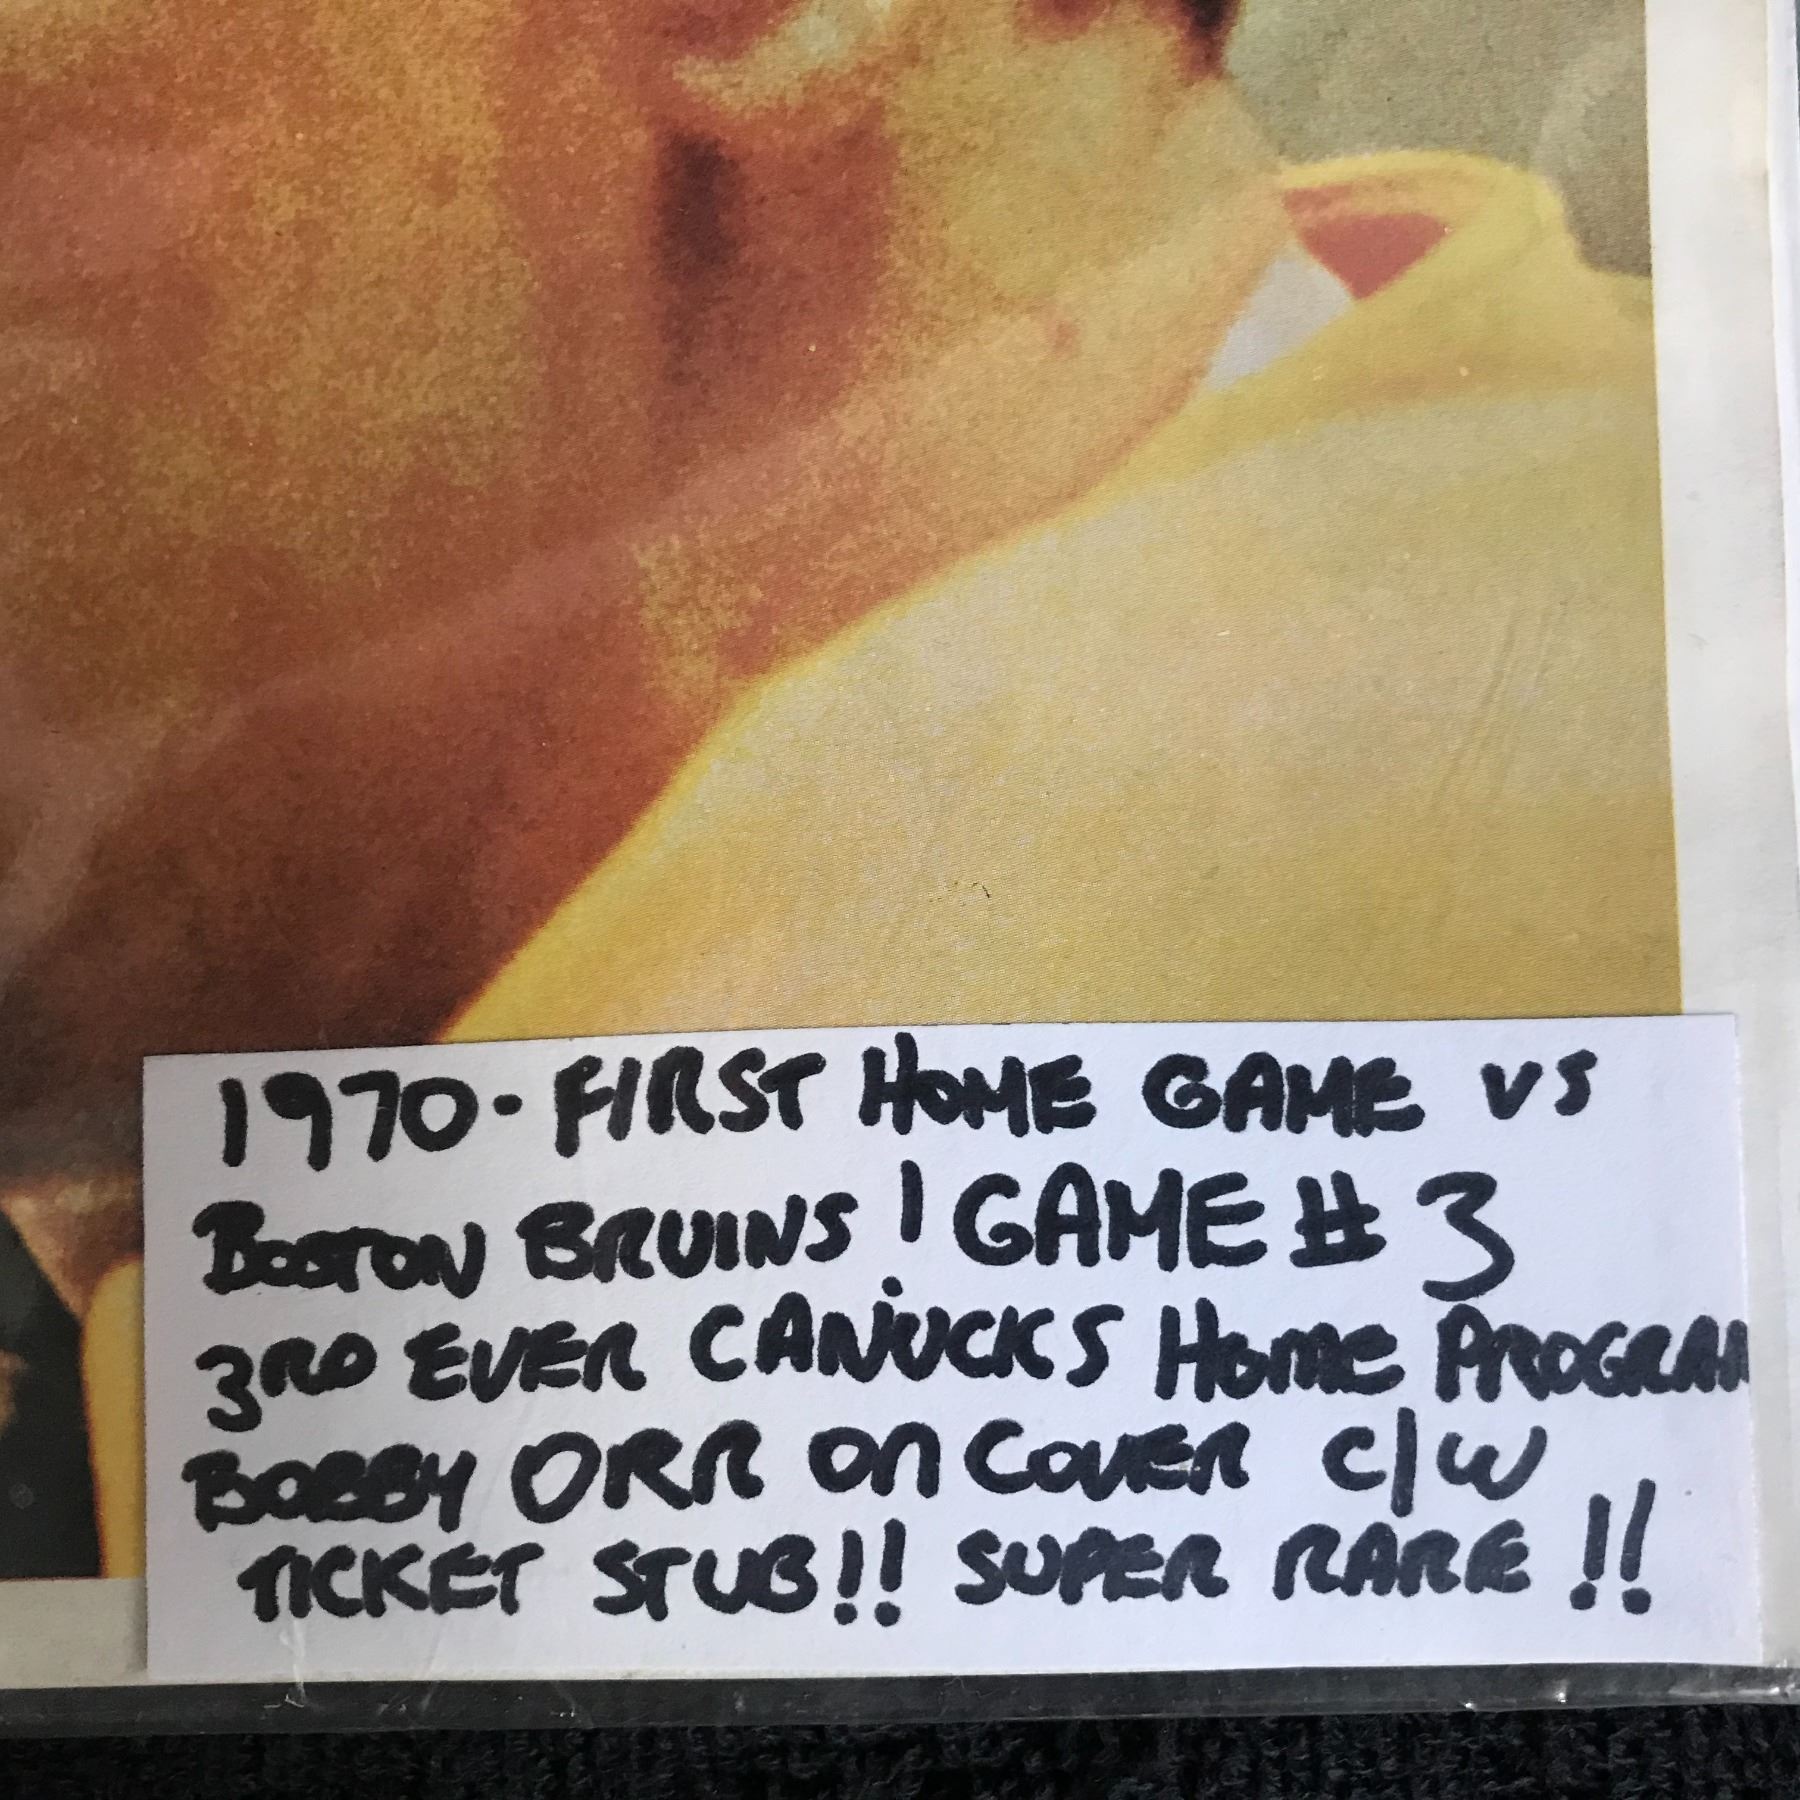 1970 - FIRST HOME GAME VS
BOSTON BRUINS! GAME # 3
3RD EVER CANUCKS HOME PROGRAM
BOBBY ORR ON COVER C/W
TICKET STUB!! SUPER RARE!!